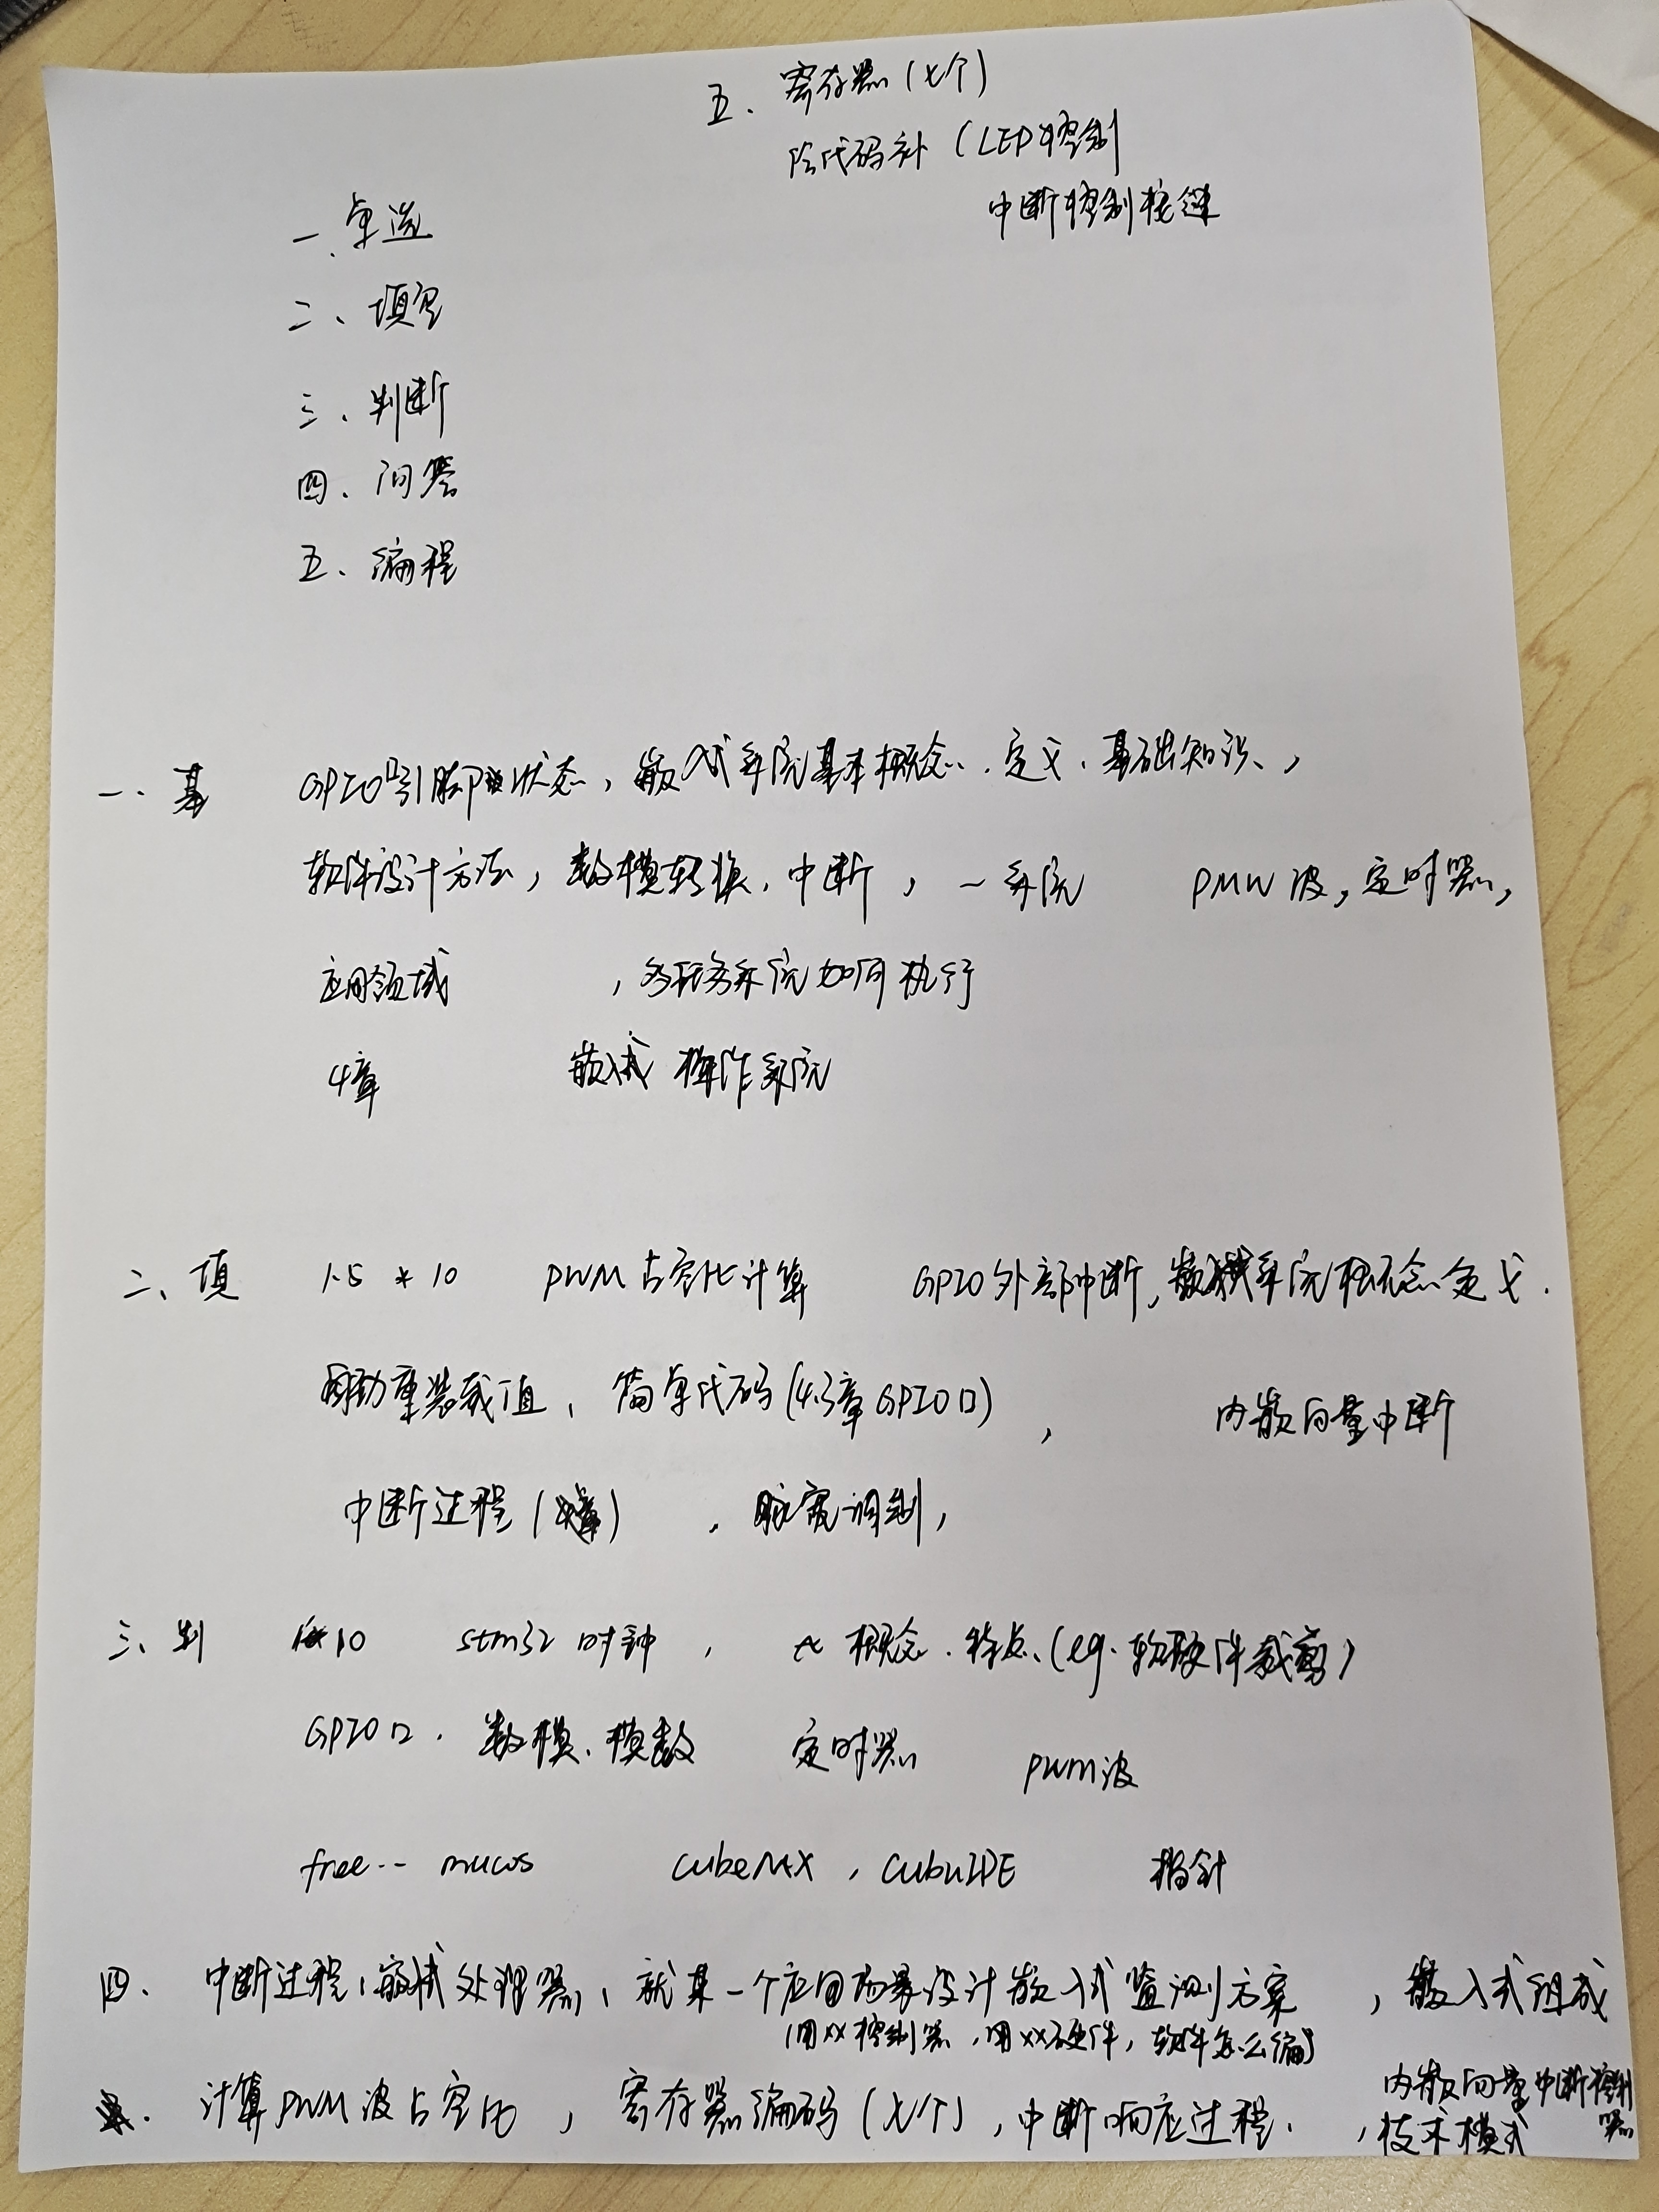 五、寄存器(七个)
代码补(LED控制
中断控制按键
一、单选
二、填空
三、判断
四、问答
五、编程
一、基 GPIO口引脚状态,嵌入式系统基本概念、定义、基础知识、,
软件设计方法,数模转换、中断,一系统 PMW波,定时器,
应用领域 ,多任务系统如何执行
4章 嵌入式操作系统
二、填 1.5*10 PWM占空比计算 GPIO外部中断,嵌入式系统概念定义.
自动重装载值、简单代码(4.3章GPIO口), 内嵌向量中断
中断过程( ) 、脉宽调制,
三、判 1*10 stm32时钟, 概念、特点、(eg.软硬件裁剪)
GPIO口、数模、模数 定时器 PWM波
free-- mucos cubeMX,CubuIDE 指针
四、中断过程,嵌入式处理器、就某一个应用场景设计嵌入式监测方案 ,嵌入式组成
(用xx控制器,用xx硬件,软件怎么编)
计算PWM波占空比,寄存器编码(七个),中断响应过程. 内嵌向量中断控制器
,技术模式